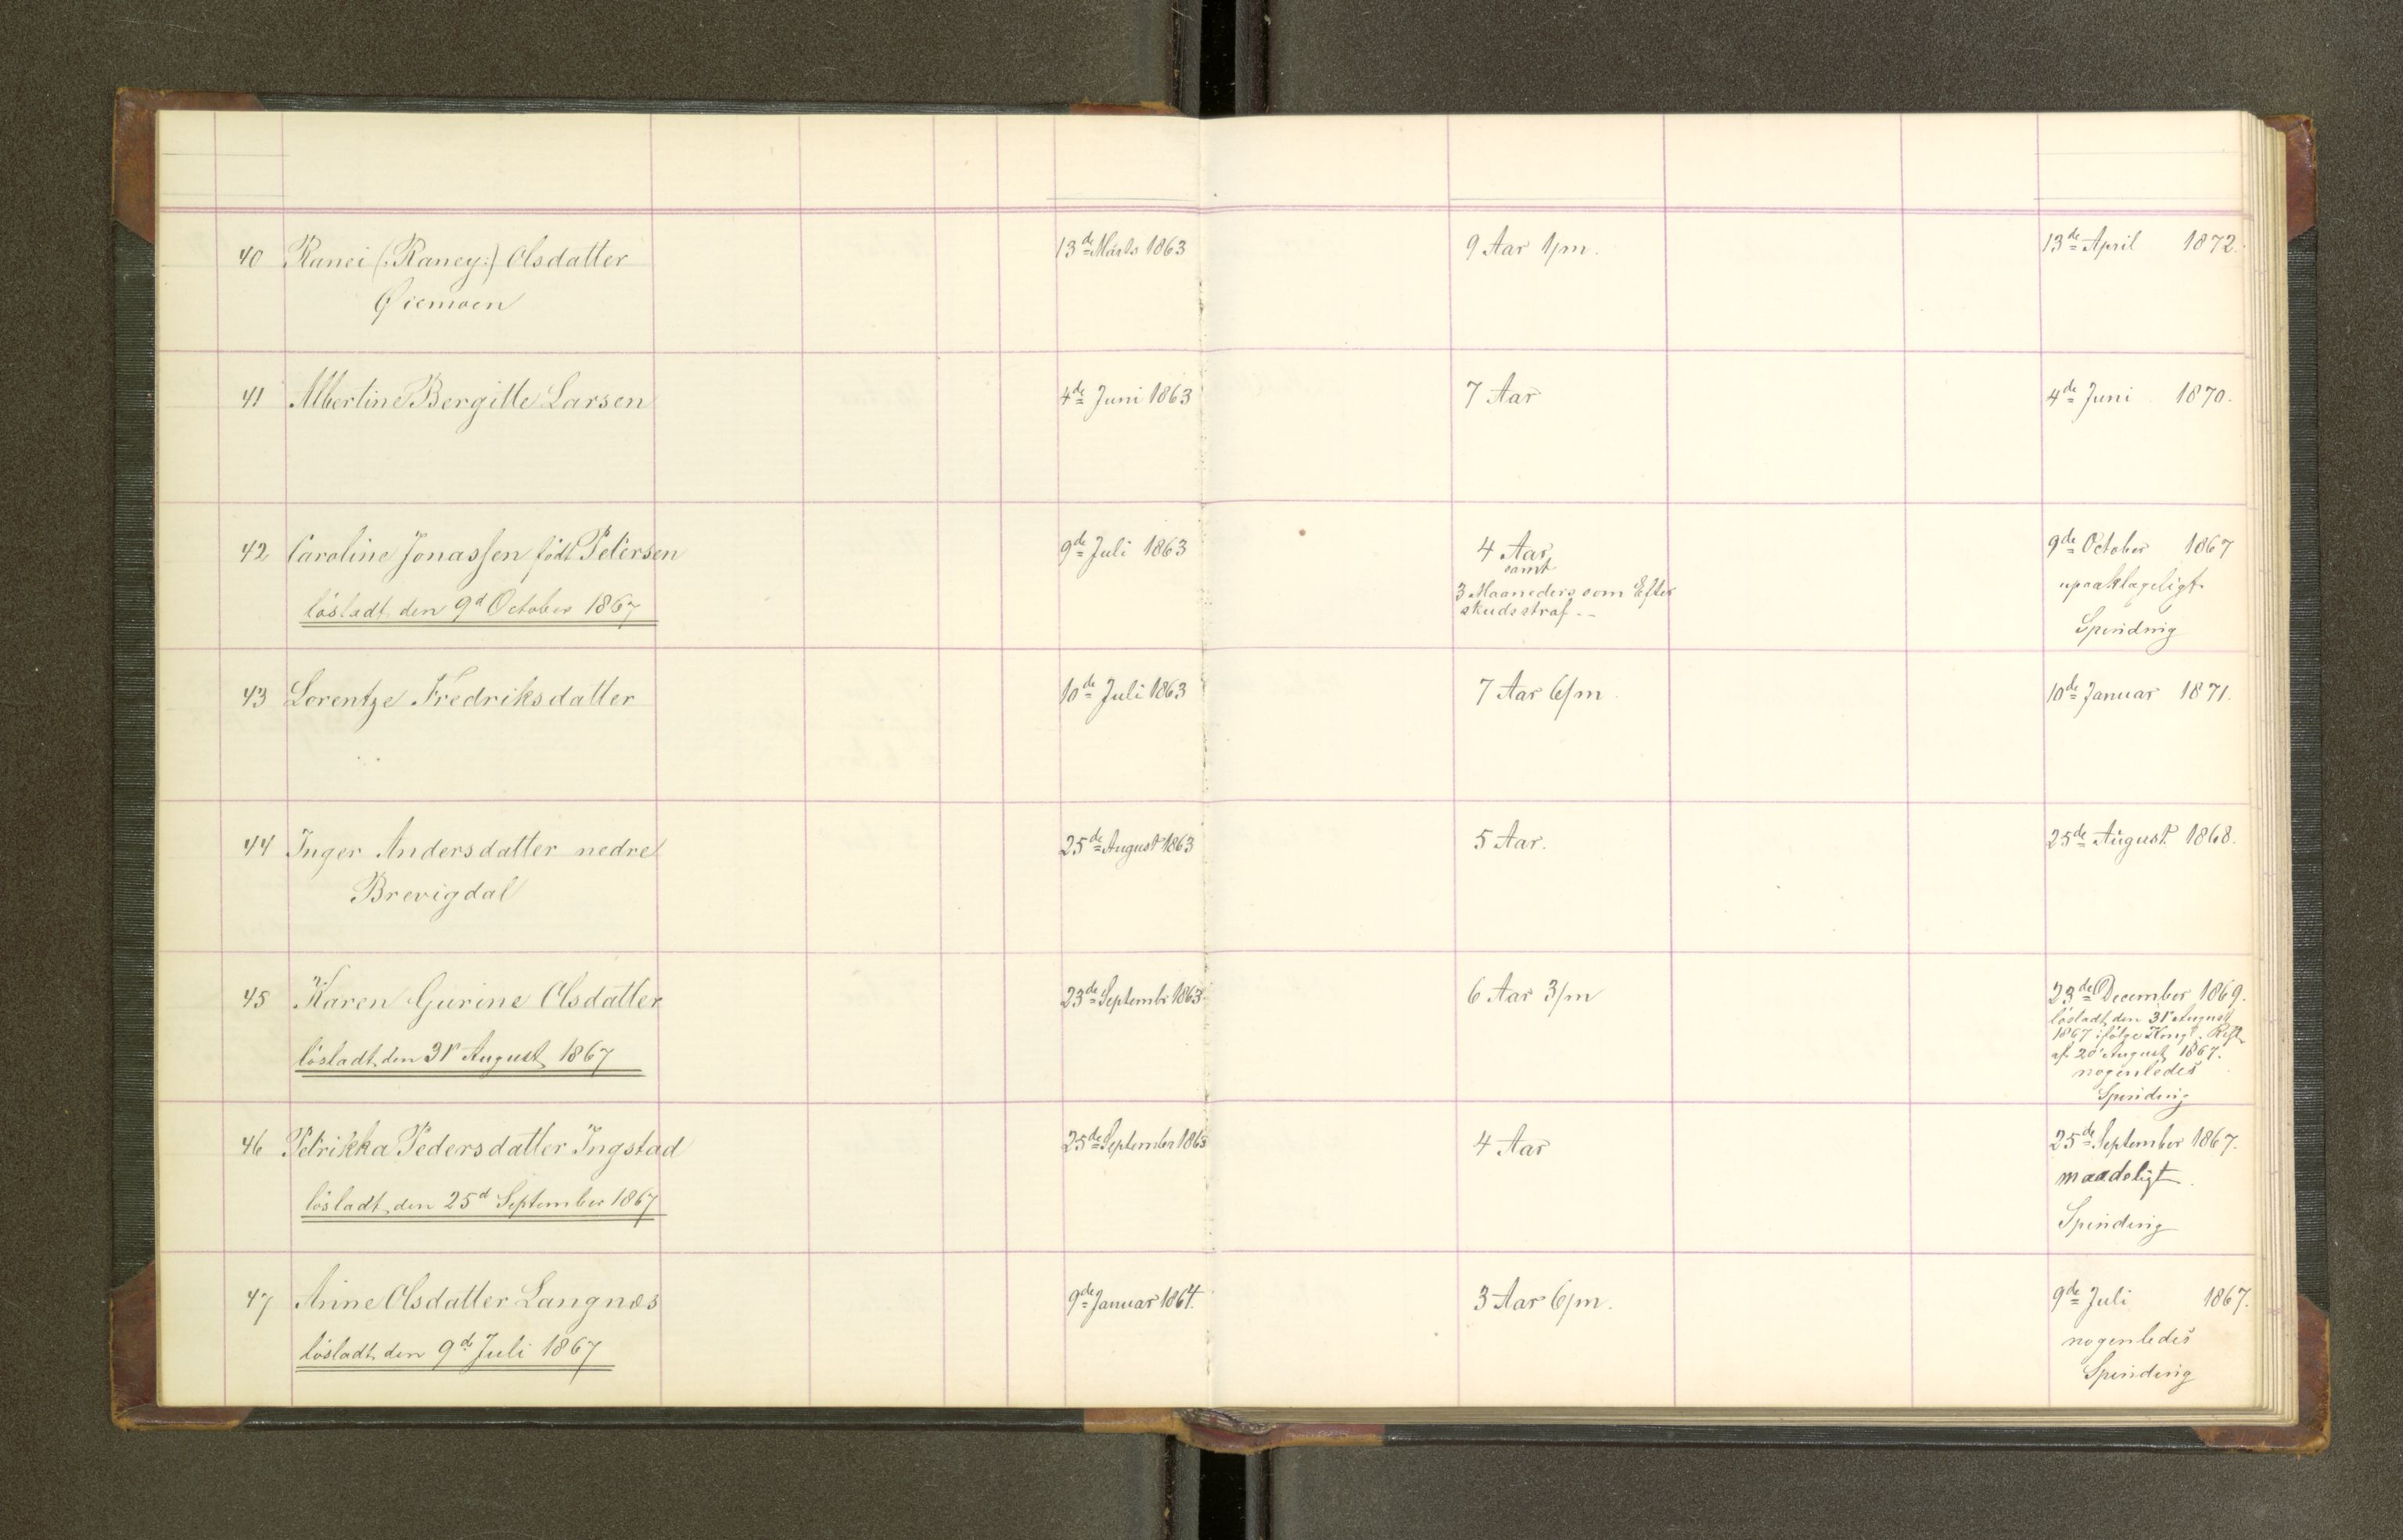 40 Ranei (: Raney :) Olsdatter 13de Marts 1863 9 Aar 1/m. 13de April 1872.
Øiemoen
41 Albertine Bergitte Larsen 4de Juni 1863 7 Aar 4de Juni 1870.
42 Caroline Jonassen født Petersen 9de Juli 1863 4 Aar 9de October 1867
samt
løsladt den 9d October 1867 3 Maaneders som Efter upaaklageligt
skudsstraf --
Spinding
43 Lorentze Fredriksdatter 10de Juli 1863 7 Aar 6/m 10de Januar 1871.
44 Inger Andersdatter nedre 25de August 1863 5 Aar. 25de August 1868.
Brevigdal
45 Karen Gurine Olsdatter 23de Septembr 1863 6 Aar 3/m 23de December 1869.
løsladt den 31t August
1867 ifølge Kongl. Resl.
løsladt den 31t August 1867 af 20 August 1867.
nogenledes
Spinding
46 Petrikka Pedersdatter Ingstad 25de September 1863 4 Aar 25de September 1867.
maadeligt
løsladt den 25d September 1867 Spinding
47 Anne Olsdatter Langnæs 9de Januar 1864. 3 Aar 6/m. 9de Juli 1867.
løsladt den 9de Juli 1867 nogenledes
Spinding